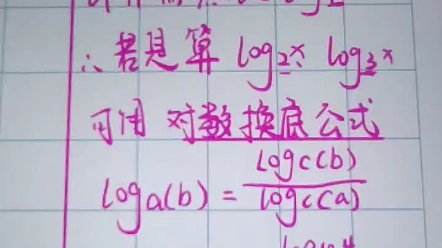 ∴若是算 log₂x log₃x
可用 对数换底公式
loga(b) = logc(b) / logc(a)